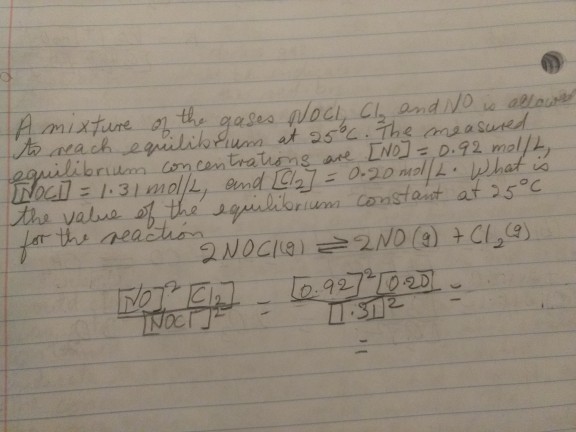 A mixture of the gases NOCl, Cl₂ and NO is allowed
to reach equilibrium at 25°C. The measured
equilibrium concentrations are [NO] = 0.92 mol/L,
[NOCl] = 1.31 mol/L, and [Cl₂] = 0.20 mol/L. What is
the value of the equilibrium constant at 25°C
for the reaction
2NOCl(g) ⇌ 2NO(g) + Cl₂(g)
[NO]² [Cl₂] / [NOCl]² = [0.92]² [0.20] / [1.31]² =
=